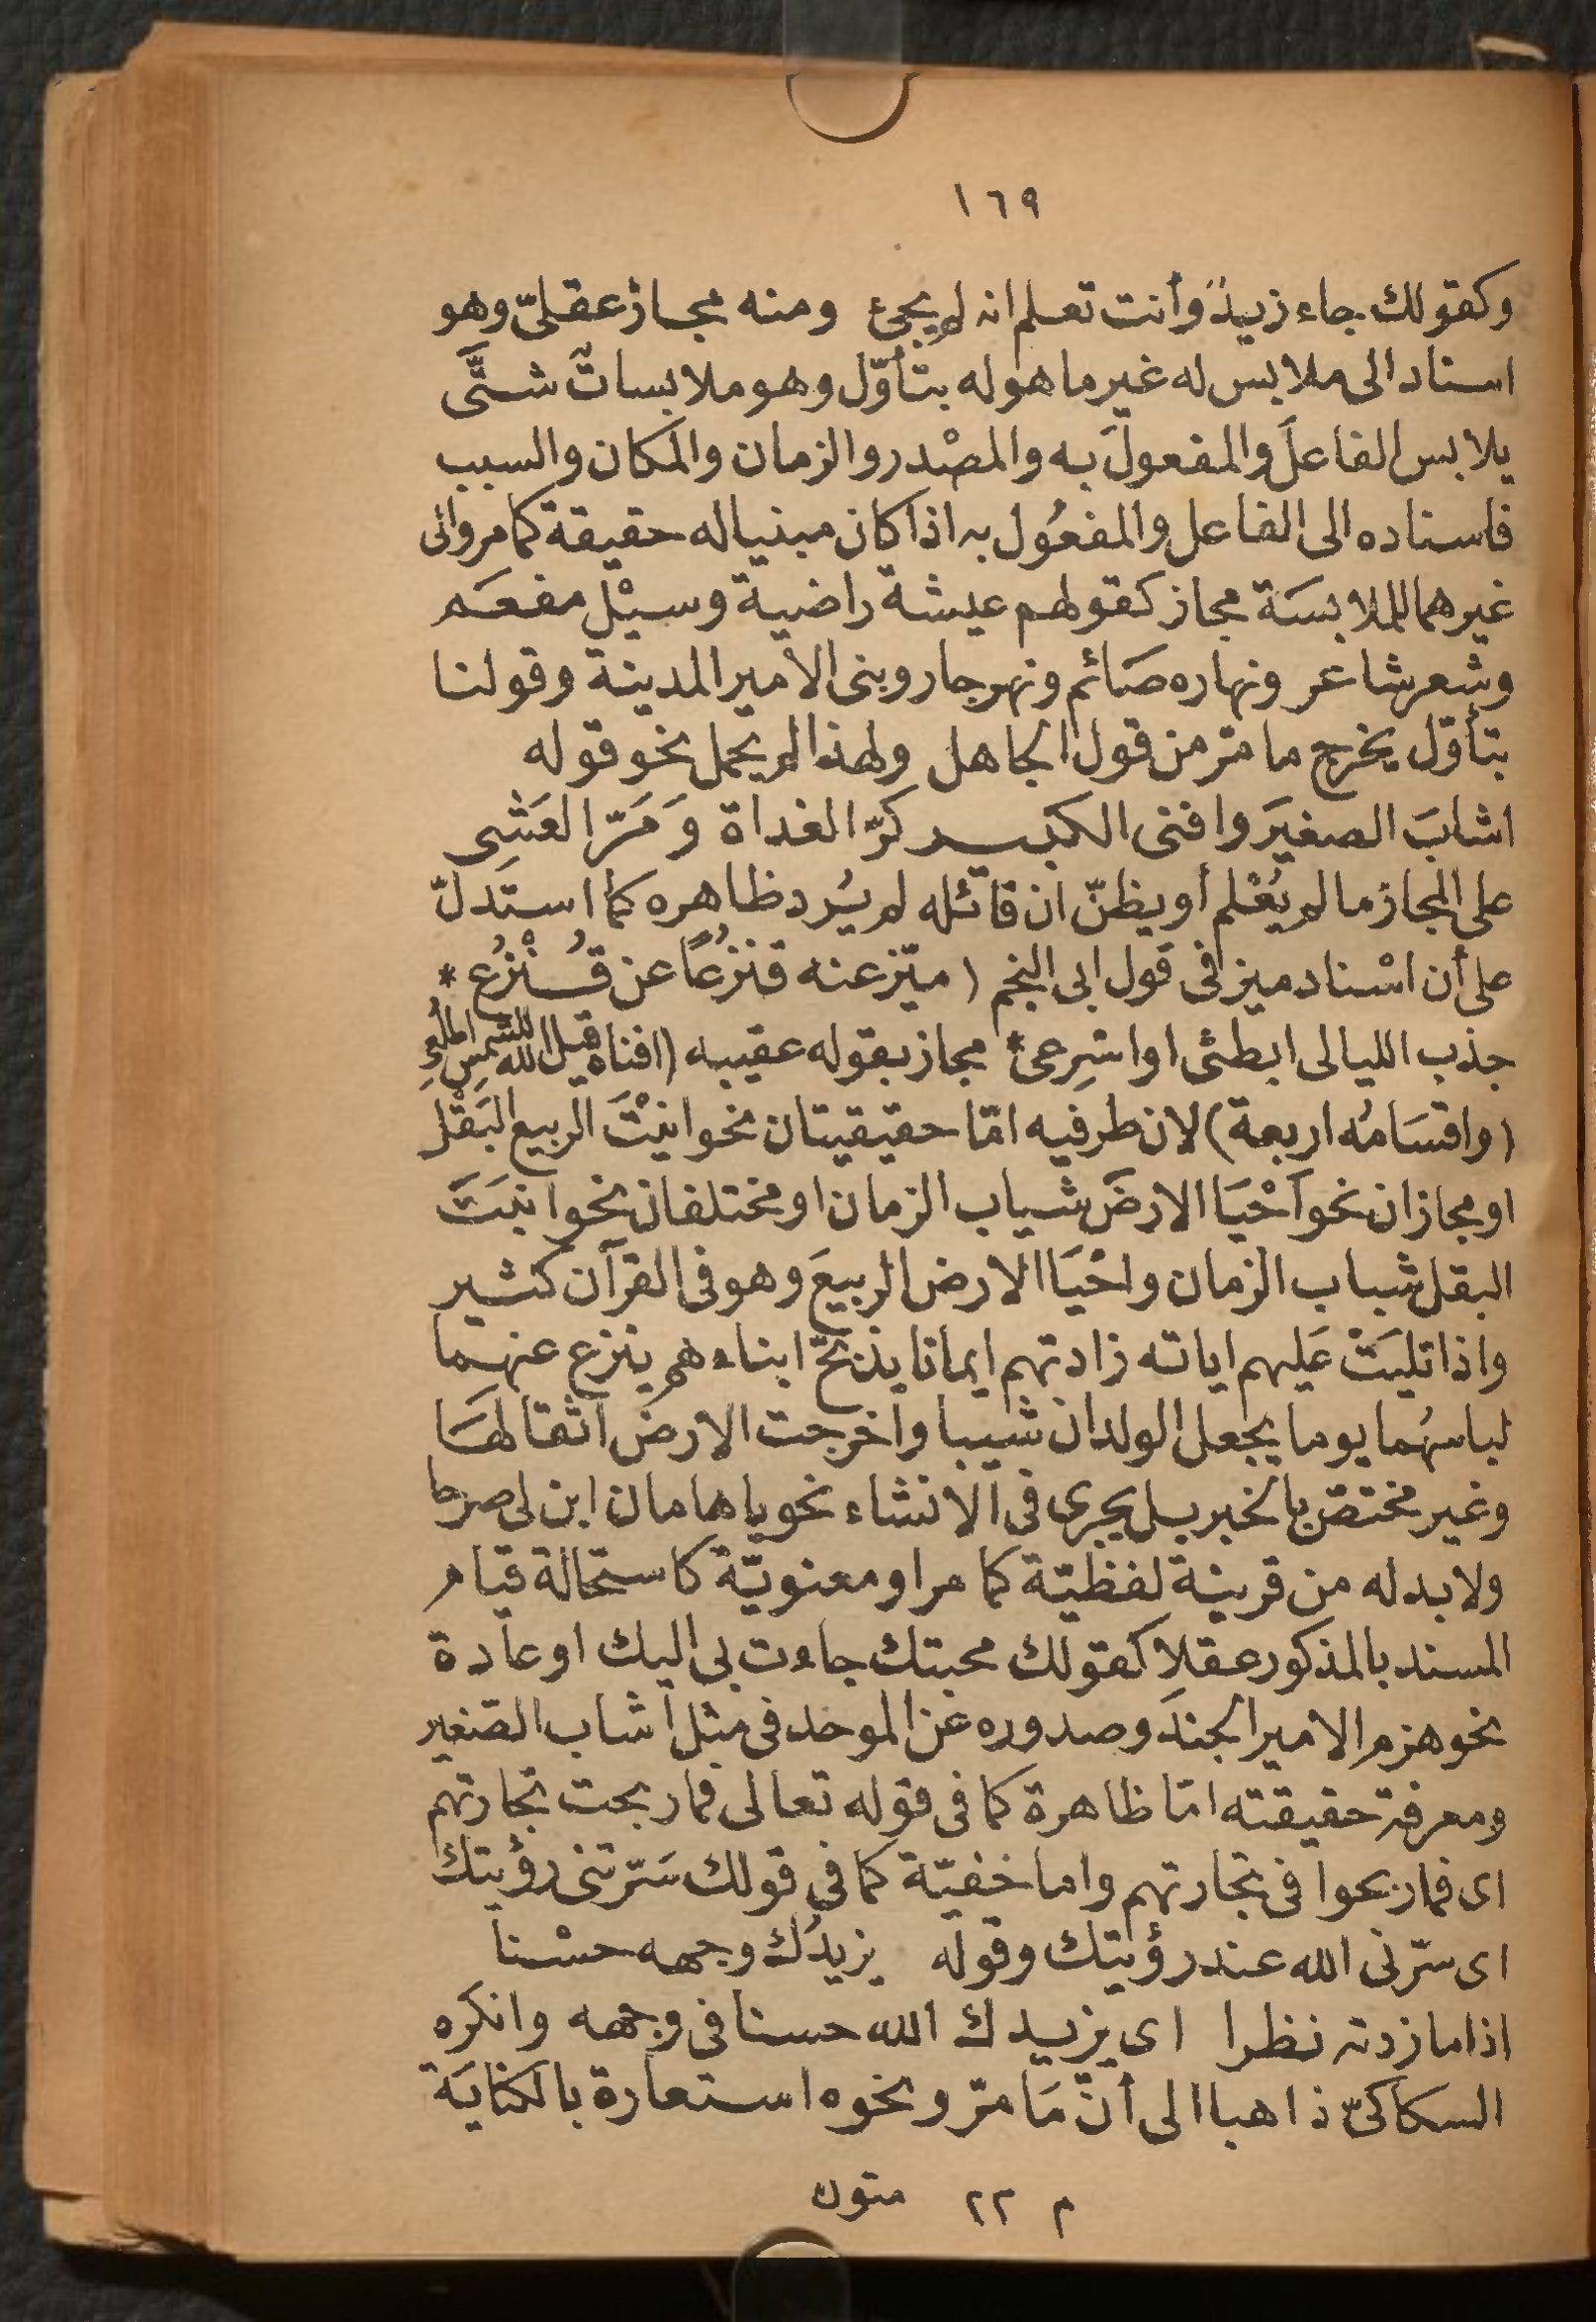 ١٦٩
وكقولك جاء زيدٌ وأنت تعلم انه لم يجئ ومنه مجاز عقلىّ وهو
اسناد الى ملابس له غير ما هو له بتأوّل وهو ملابسات شتَّى
يلابس الفاعلَ والمفعولَ به والمصْدر والزمان والمكان والسبب
فاسناده الى الفاعل والمفعُول به اذا كان مبنيا له حقيقة كما مر والى
غيرهما للملابسَة مجاز كقولهم عيشة راضية وسيْل مفعَم
وشعر شاعر ونهاره صَائم ونهر جار وبنى الأمير المدينة وقولنا
بتأوّل يخرج ما مرّ من قول الجاهل ولهذا لم يحمل نحو قوله
اشابَ الصغيَر وافنى الكبير كرّ الغداة وَمَرّ العَشِى
على المجاز ما لم يُعْلم أو يظنّ ان قائله لم يُرد ظاهره كما استَدلّ
على أن اسْناد ميز فى قول ابى النجم ( ميّز عنه قنزُعًا عن قُنْزُع *
جذب الليالى ابطئى او اسْرِعى * مجاز بقوله عقيبه (افناه قيل الله للشمس اطلُعِى
(واقسَامُه اربعة) لان طرفيه امّا حقيقيتان نحو انبْتَ الربيع البَقْل
او مجازان نحو اَحْيَا الارضَ شباب الزمان او مختلفان نحو انبَتَ
البقل شباب الزمان واحْيَا الارض الربيعَ وهو فى القرآن كثير
واذا تليَتْ عَليهم اياته زادتهم ايمانا يذبّح ابناءهم ينزع عنهما
لباسهُما يوما يجعل الولدان شيبا وأخرجت الارض اثقالهَا
وغير مختصّ بالخبر بل يجرى فى الانشاء نحو يا هامان ابن لى صرحا
ولا بد له من قرينة لفظيّة كما مر او معنويّة كاستحالة قيام
المسند بالمذكور عقلا كقولك محبتك جاءت بى اليك او عادة
نحو هزم الامير الجندَ وصدوره عن الموحد فى مثل أشاب الصغير
ومعرفة حقيقته امّا ظاهرة كما فى قوله تعالى فما ربحت تجارتهم
اى فما ربحوا فى تجارتهم واما خفيّة كما فى قولك سَرّتنى رؤيتك
اى سرّنى الله عند رؤيتك وقوله يزيدُك وجهه حسْنا
اذا ما زدته نظرا اى يزيدك الله حسنا فى وجهه وانكره
السكاكىّ ذاهبا الى أنّ مَا مرّ ونحوه استعارة بالكنايَة
م ٢٢ متون